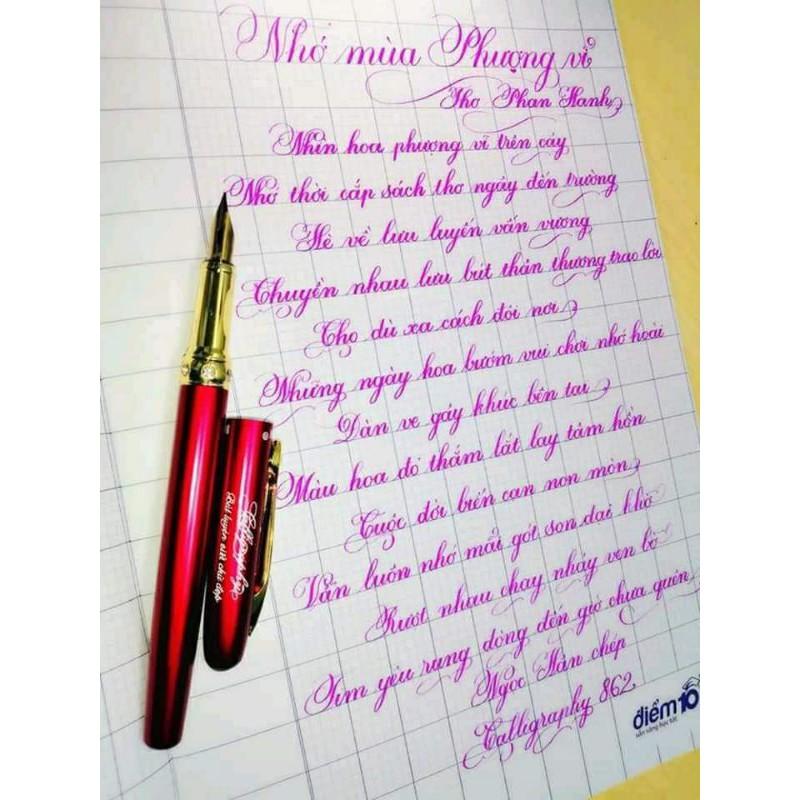 Nhớ mùa Phượng vĩ
Thơ Phan Hạnh
Nhìn hoa phượng vĩ trên cây
Nhớ thời cắp sách thơ ngây đến trường
Hè về lưu luyến vấn vương
Chuyền nhau lưu bút thân thương trao lời
Cho dù xa cách đôi nơi
Những ngày hoa bướm vui chơi nhớ hoài
Đàn ve gảy khúc bên tai
Màu hoa đỏ thắm lắt lay tâm hồn
Cuộc đời biển cạn non mòn
Vẫn luôn nhớ mãi gót son dại khờ
Rượt nhau chạy nhảy ven bờ
Tim yêu rung động đến giờ chưa quên
Ngọc Hân chép
Calligraphy 862
Calligraphy
Bút luyện viết chữ đẹp
điểm10
sẵn sàng học tốt